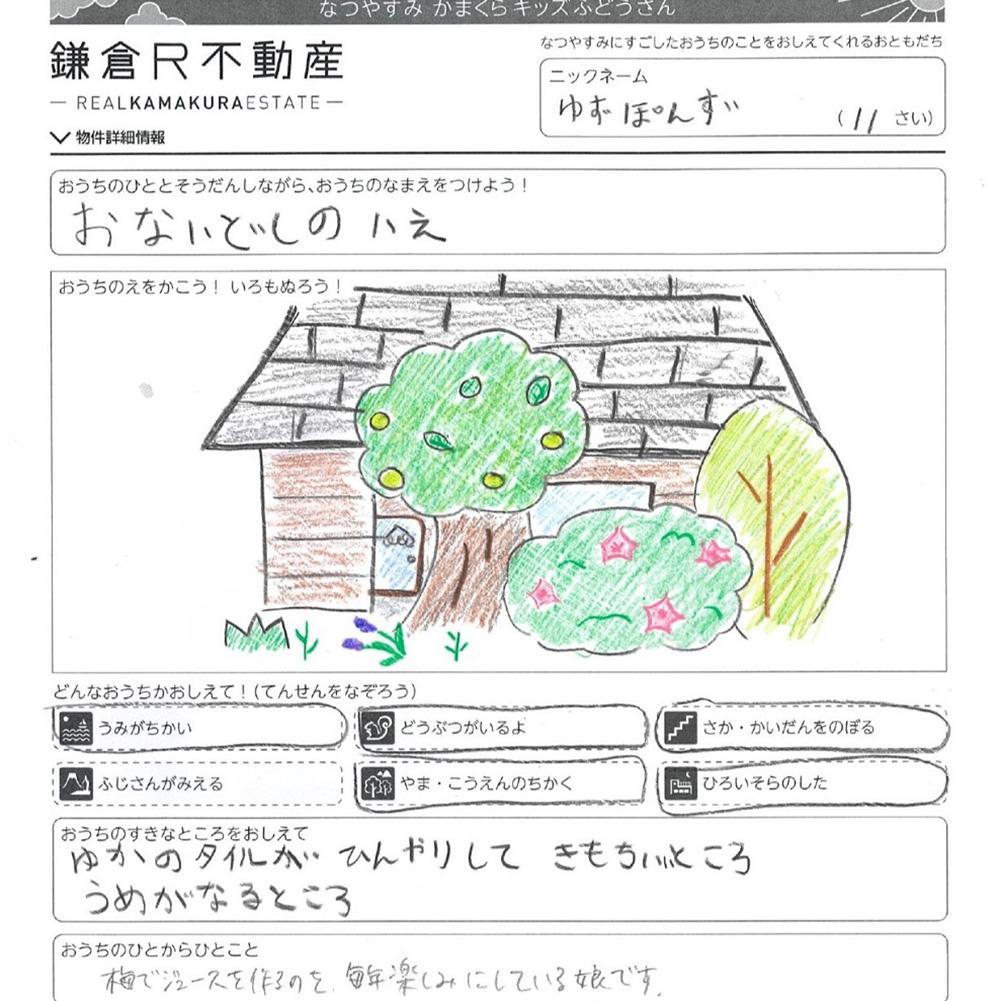 なつやすみ かまくらキッズふどうさん
鎌倉R不動産
― REALKAMAKURAESTATE ―
物件詳細情報
なつやすみにすごしたおうちのことをおしえてくれるおともだち
ニックネーム
ゆずぽんず
(11 さい)
おうちのひととそうだんしながら、おうちのなまえをつけよう！
おないどしのいえ
おうちのえをかこう！ いろもぬろう！
どんなおうちかおしえて！(てんせんをなぞろう)
うみがちかい
どうぶつがいるよ
さか・かいだんをのぼる
ふじさんがみえる
やま・こうえんのちかく
ひろいそらのした
おうちのすきなところをおしえて
ゆかのタイルが ひんやりして きもちいいところ
うめがなるところ
おうちのひとからひとこと
梅でジュースを作るのを、毎年楽しみにしている娘です。